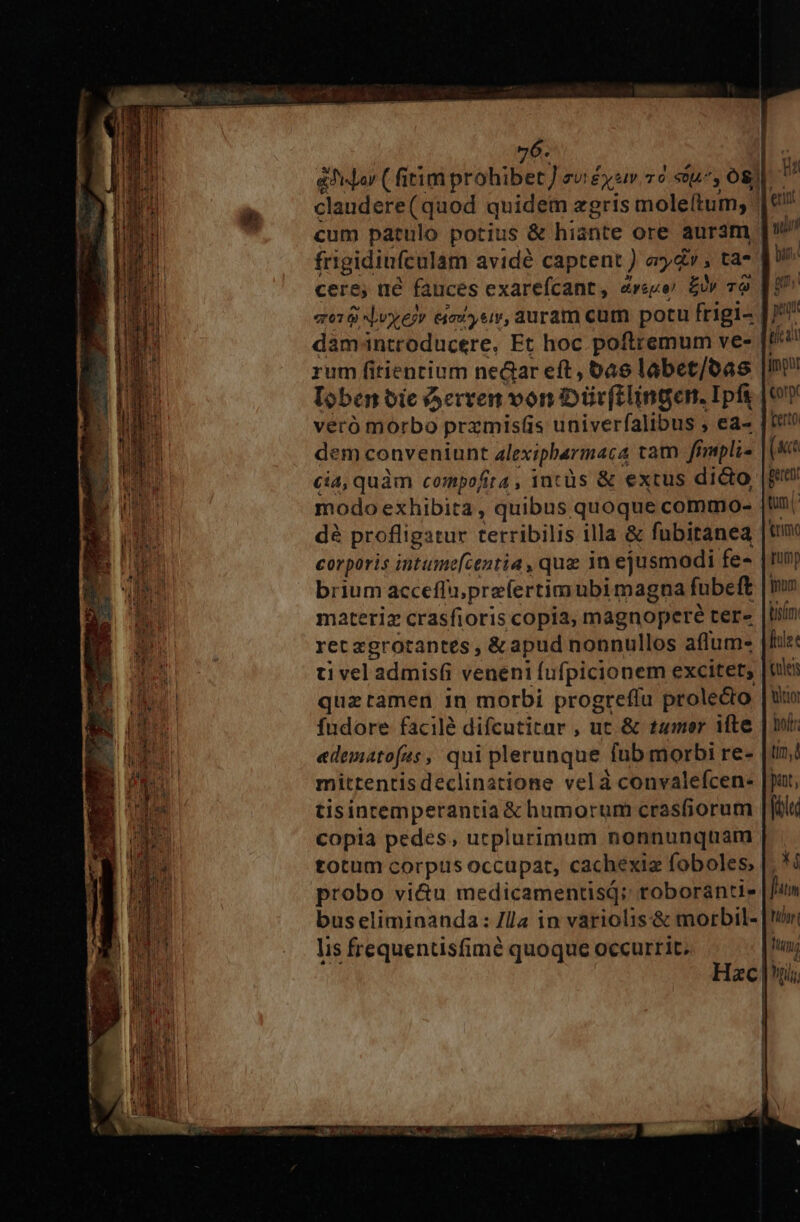 76.
ἄδιψον (ſitim prohibet) συνέχειν τὸ στόμα, os
claudere (quod quidem ægris moleſtum,
cum patulo potius & hiante ore auram
frigidiuſculam avidè captent) σιγᾶν, ta-
cere, nè fauces exareſcant, ἄνεμον ξὺν τῷ
ποτῷ ψυχρὸν εἰσάγειν, auram cum potu frigi-
dam introducere. Et hoc poſtremum ve-
rum ſitientium nectar eſt, das labet/das
loben die Herren von Dürſtlingen. Ipſi
verò morbo præmisſis univerſalibus, ea-
dem conveniunt alexipharmaca tam ſimpli-
cia, quàm compoſita, intùs & extus dicto
modo exhibita, quibus quoque commo-
dè profligatur terribilis illa & ſubitanea
corporis intumeſcentia, quæ in ejusmodi fe-
brium acceſſu, præſertim ubi magna ſubeſt
materiæ crasſioris copia, magnoperè ter-
ret ægrotantes, & apud nonnullos aſſum-
ti vel admisſi veneni ſuſpicionem excitet,
quæ tamen in morbi progreſſu prolecto
ſudore facilè diſcutitur, ut & tumor iſte
œdematoſus, qui plerunque ſub morbi re-
mittentis declinatione vel à convaleſcen-
tis intemperantia & humorum crasſiorum
copia pedes, utplurimum nonnunquam
totum corpus occupat, cachexiæ ſoboles,
probo victu medicamentisq́; roboranti-
bus eliminanda: Illa in variolis & morbil-
lis frequentisſimè quoque occurrit.
Hæc